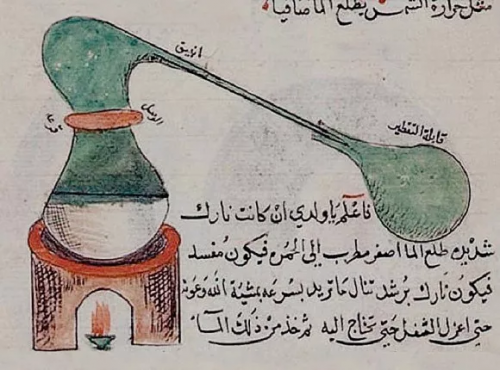 مثل حرارة الشمس يطلع الما صافيا
الانبيق
قابلة التقطير
قرعة
فاعلم يا ولدي ان كانت نارك
شديده طلع الما اصفر مطرب الى الحمره فيكون مفسد
فيكون نارك برشد تنال ما تريد بسرعه بمشية الله وعونه
حتى اعزل الثفل حتى تحتاج اليه ثم خذ من ذلك الماء